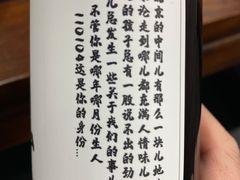 北京的中间儿有那么一块儿地
不论走到哪儿都充满人情味儿
的孩子总有一股说不出的劲
儿总发生一些关于我们的事儿
不管你是哪年哪月份生人
二〇一〇〇四这是你的身份…